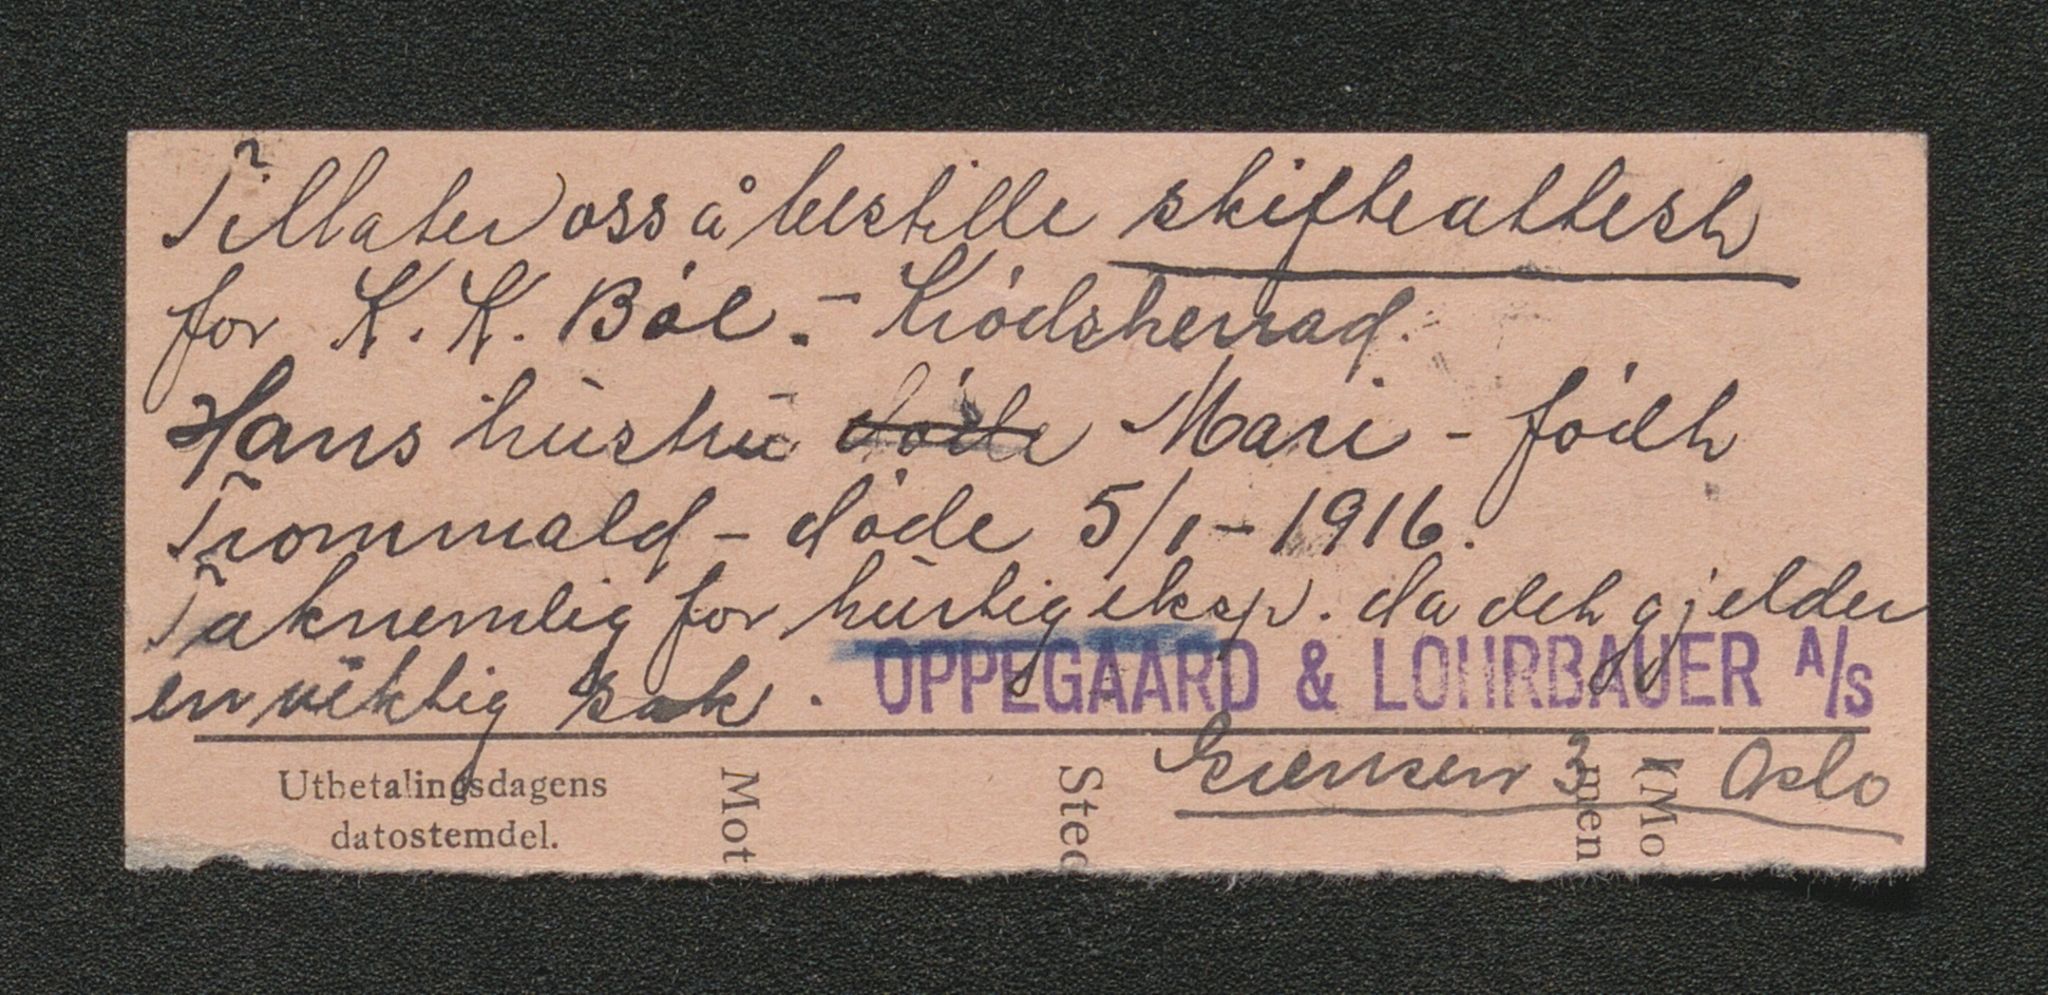 Tillater oss å bestille skifteattest
for K. K. Bøe. - Krødsherrad.
Hans hustru døde Mari - født
Trommald - døde 5/1 - 1916.
Taknemlig for hurtig eksp. da det gjelder
en viktig sak.
OPPEGAARD & LOHRBAUER A/S
Grensen 3 Oslo
Utbetalingsdagens
datostemdel.
Mot
Sted
nen
(Mo